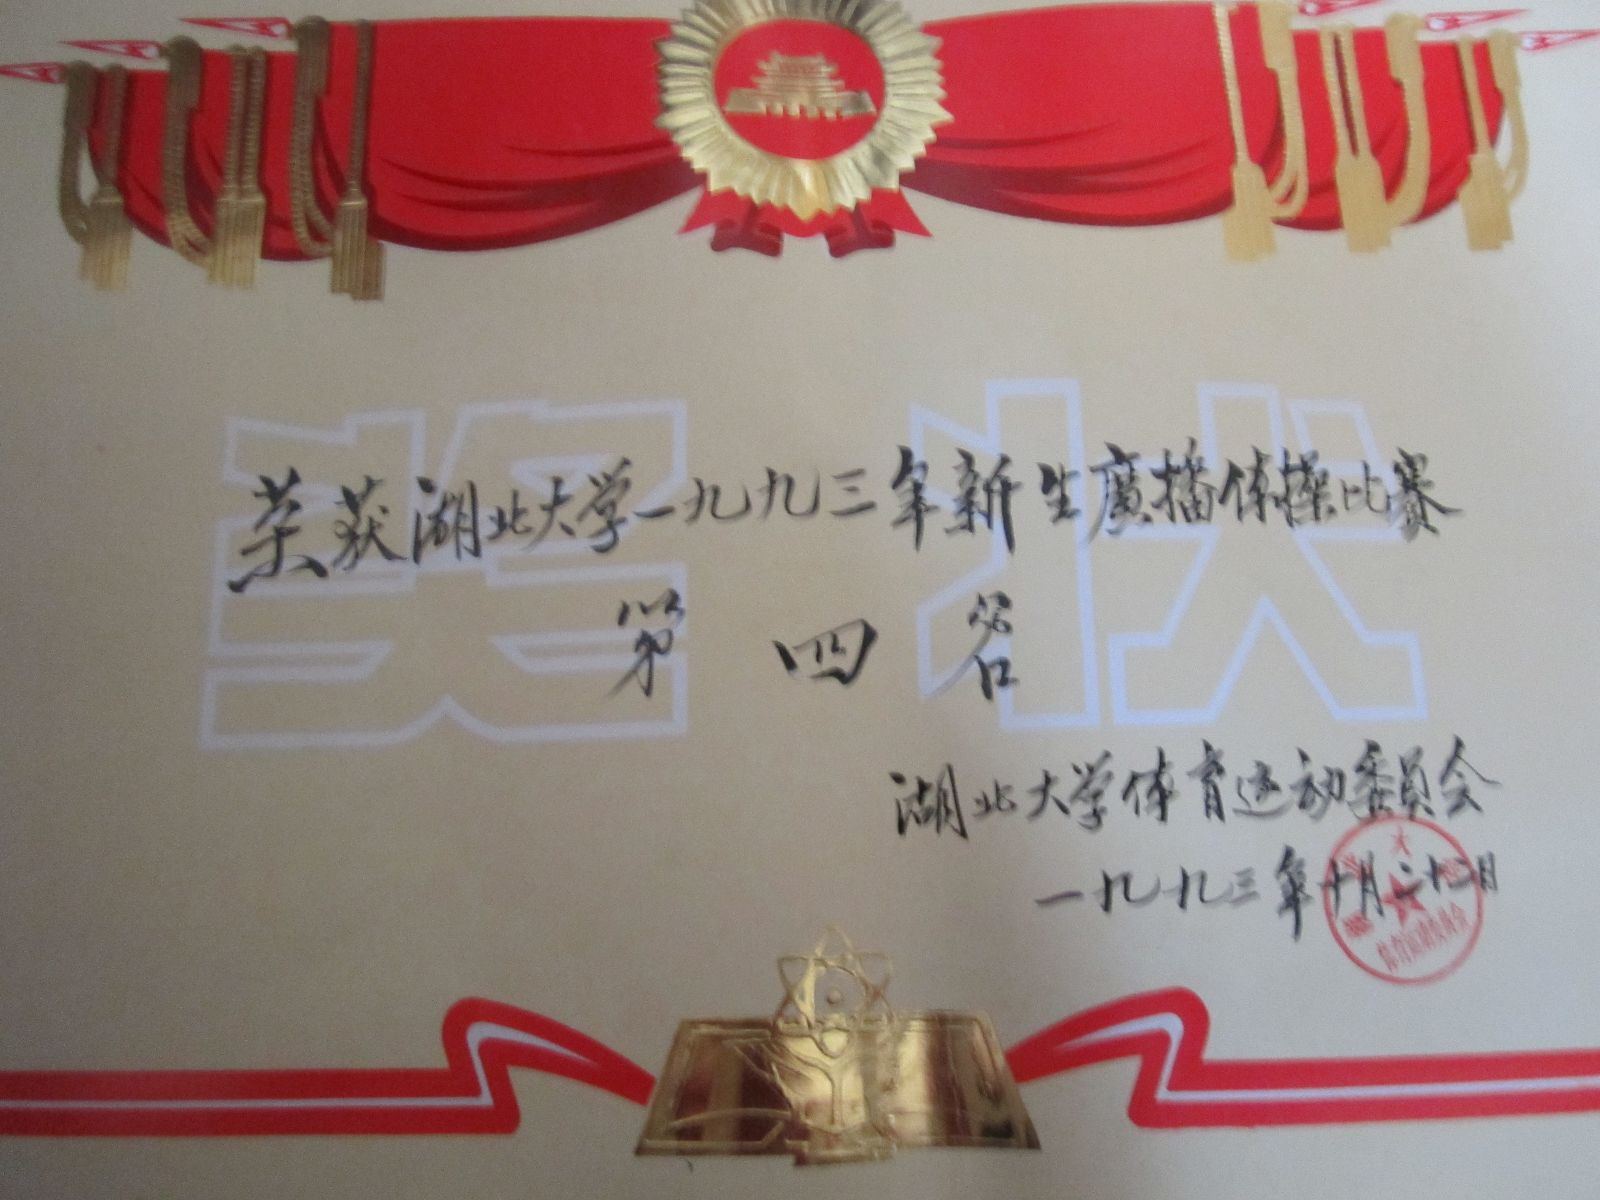 奖状
荣获湖北大学一九九三年新生廣播体操比赛
第四名
湖北大学体育运动委员会
一九九三年十月二十二日
体育运动委员会